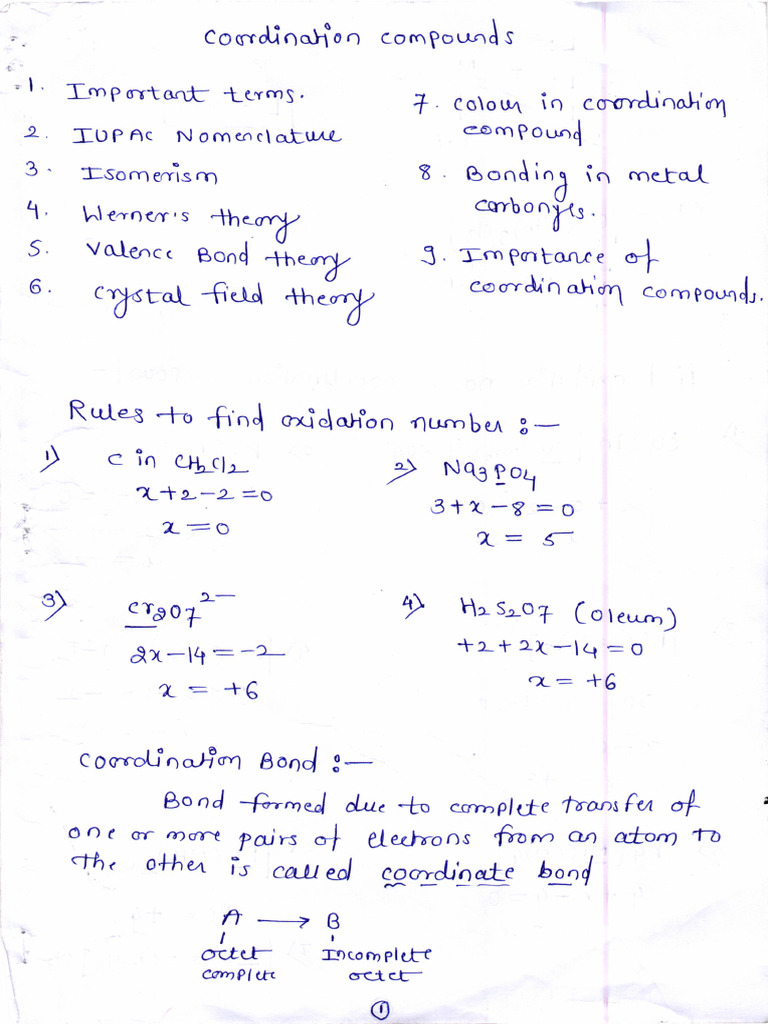 Coordination compounds
1. Important terms.
2. IUPAC Nomenclature
3. Isomerism
4. Werner's theory
5. Valence Bond theory
6. Crystal field theory
7. Colour in coordination
compound
8. Bonding in metal
carbonyls.
9. Importance of
coordination compounds.
Rules to find oxidation number :—
1) C in CH2Cl2
x+2-2=0
x=0
2) Na3PO4
3+x-8=0
x = 5
3) Cr2O7²⁻
2x-14=-2
x = +6
4) H2S2O7 (Oleum)
+2+2x-14=0
x= +6
Coordination Bond :—
Bond formed due to complete transfer of
one or more pairs of electrons from an atom to
the other is called coordinate bond
A → B
octet Incomplete
complete octet
1